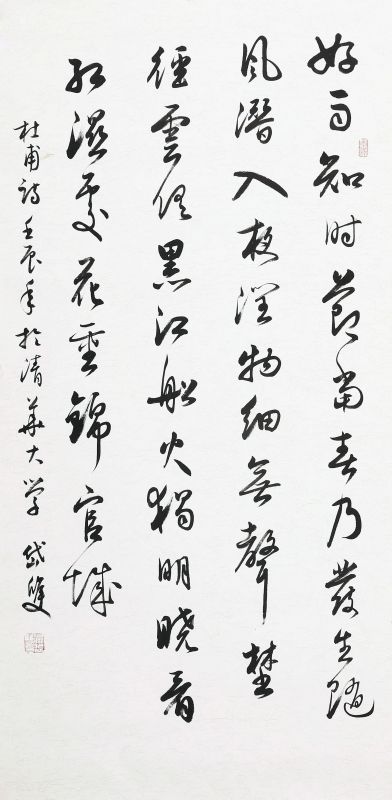 好雨知时節當春乃發生隨
风潛入夜潤物細無聲埜
徑雲俱黑江船火獨明曉看
紅濕處花重錦官城
杜甫詩壬辰年於清華大学 岱雙